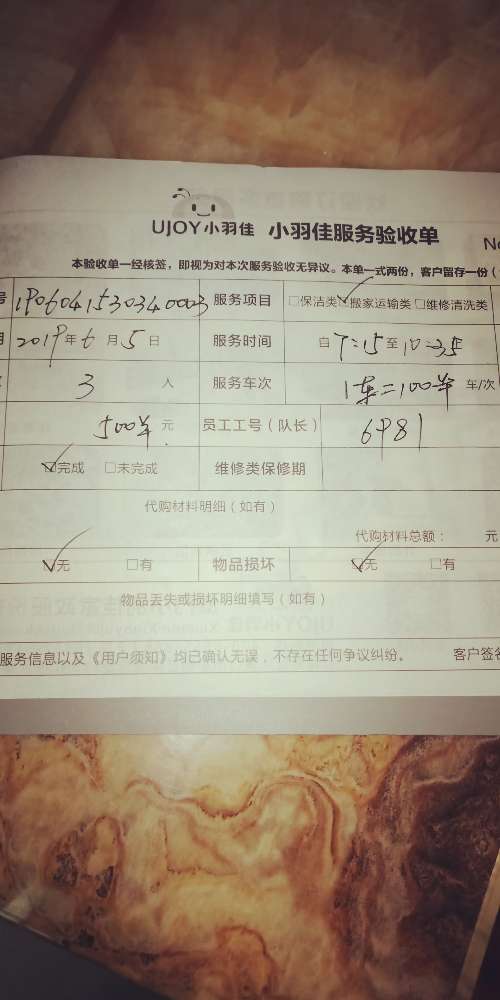 UJOY小羽佳 小羽佳服务验收单
No
本验收单一经核签，即视为对本次服务验收无异议。本单一式两份，客户留存一份（
号 1906041530340003 服务项目 □保洁类☑搬家运输类□维修清洗类
期 2019年6月5日 服务时间 自7:15至10:35
3人 服务车次 1车=100羊 车/次
500羊 元 员工工号（队长） 6981
☑完成 □未完成 维修类保修期
代购材料明细（如有）
代购材料总额： 元
☑无 □有 物品损坏 ☑无 □有
物品丢失或损坏明细填写（如有）
服务信息以及《用户须知》均已确认无误，不存在任何争议纠纷。 客户签名